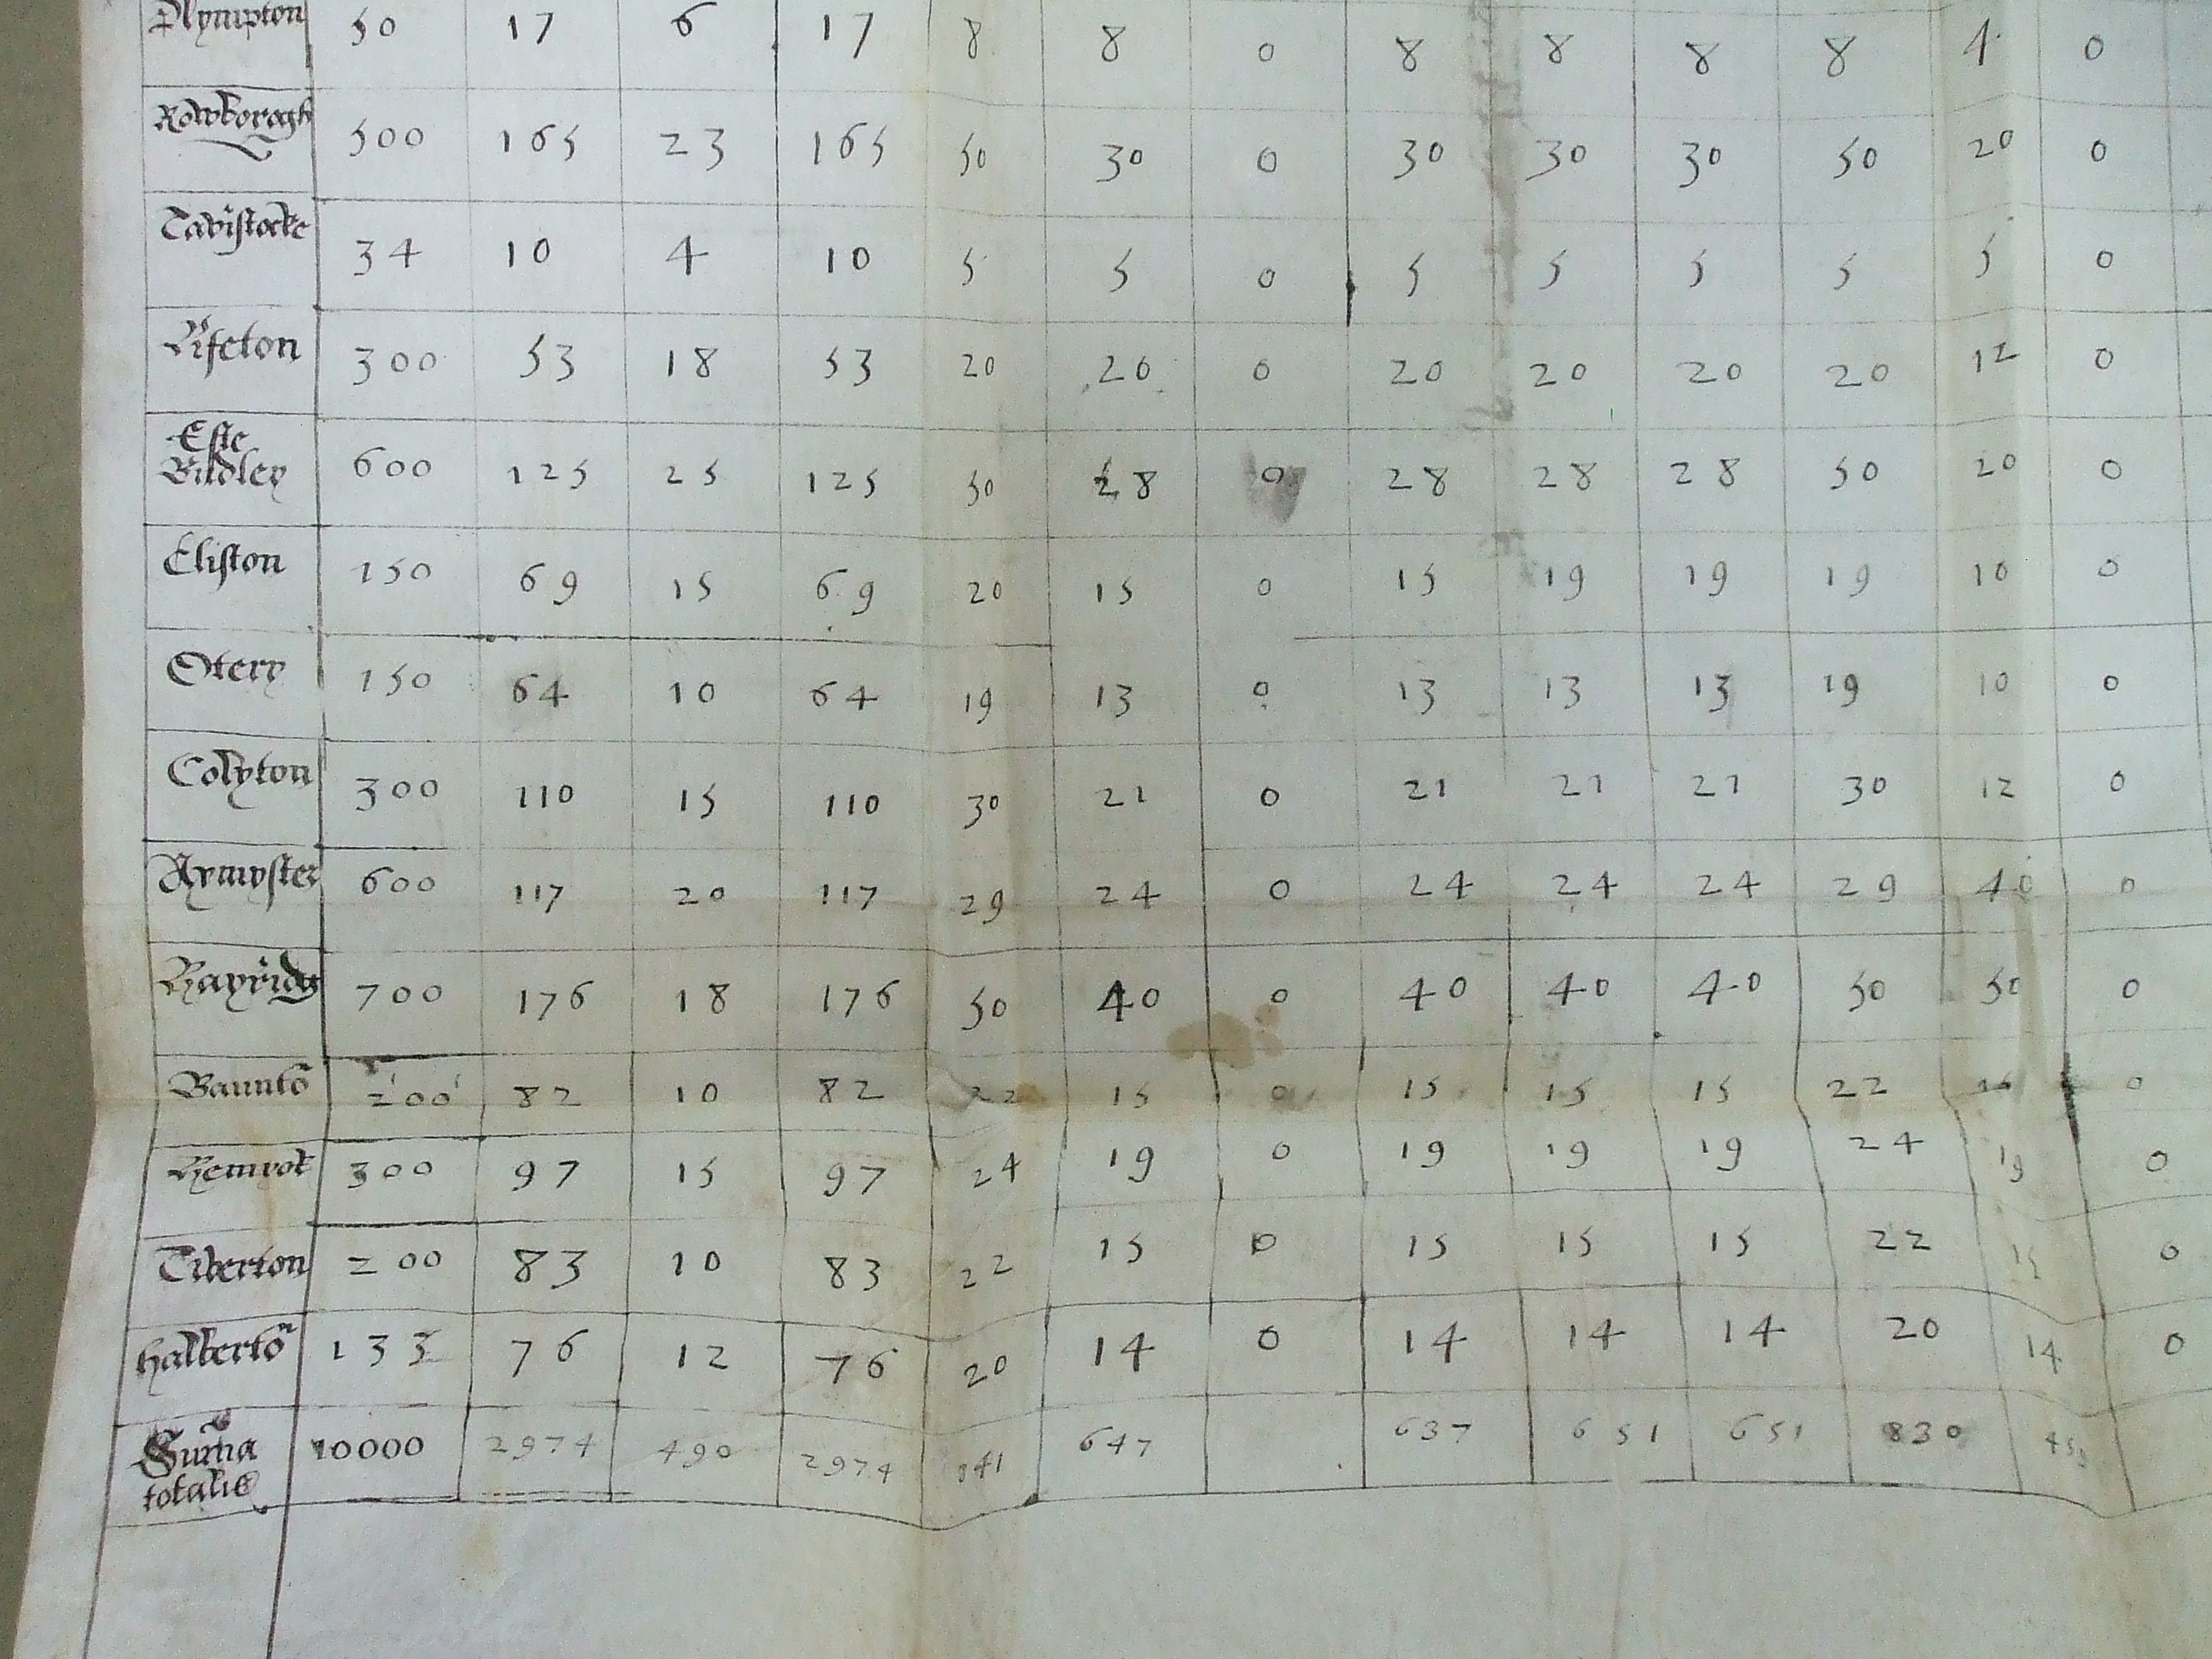 Plympton 50 17 6 17 8 8 0 8 8 8 8 4 0
Rowborogh 500 165 23 165 50 30 0 30 30 30 50 20 0
Tavistocke 34 10 4 10 5 5 0 5 5 5 5 5 0
Lifton 300 53 18 53 20 20 0 20 20 20 20 12 0
Este
Budley 600 125 25 125 50 28 0 28 28 28 50 20 0
Cliston 150 69 15 69 20 15 0 15 19 19 19 10 0
Otery 150 64 10 64 19 13 0 13 13 13 19 10 0
Colyton 300 110 15 110 30 21 0 21 21 21 30 12 0
Axmyster 600 117 20 117 29 24 0 24 24 24 29 40 0
Hayridg 700 176 18 176 50 40 0 40 40 40 50 50 0
Baunto 200 82 10 82 22 15 0 15 15 15 22 0
Hemyok 300 97 15 97 24 19 0 19 19 19 24 19 0
Tiverton 200 83 10 83 22 15 0 15 15 15 22 15 0
Halberto 133 76 12 76 20 14 0 14 14 14 20 14 0
Suma
totalis 10000 2974 490 2974 841 647 637 651 651 830